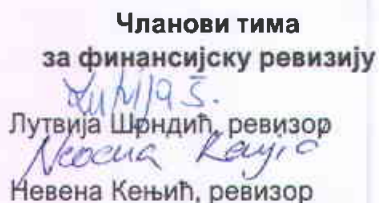 Чланови тима
за финансијску ревизију
Лутвија Шрндић, ревизор
Невена Кењић, ревизор